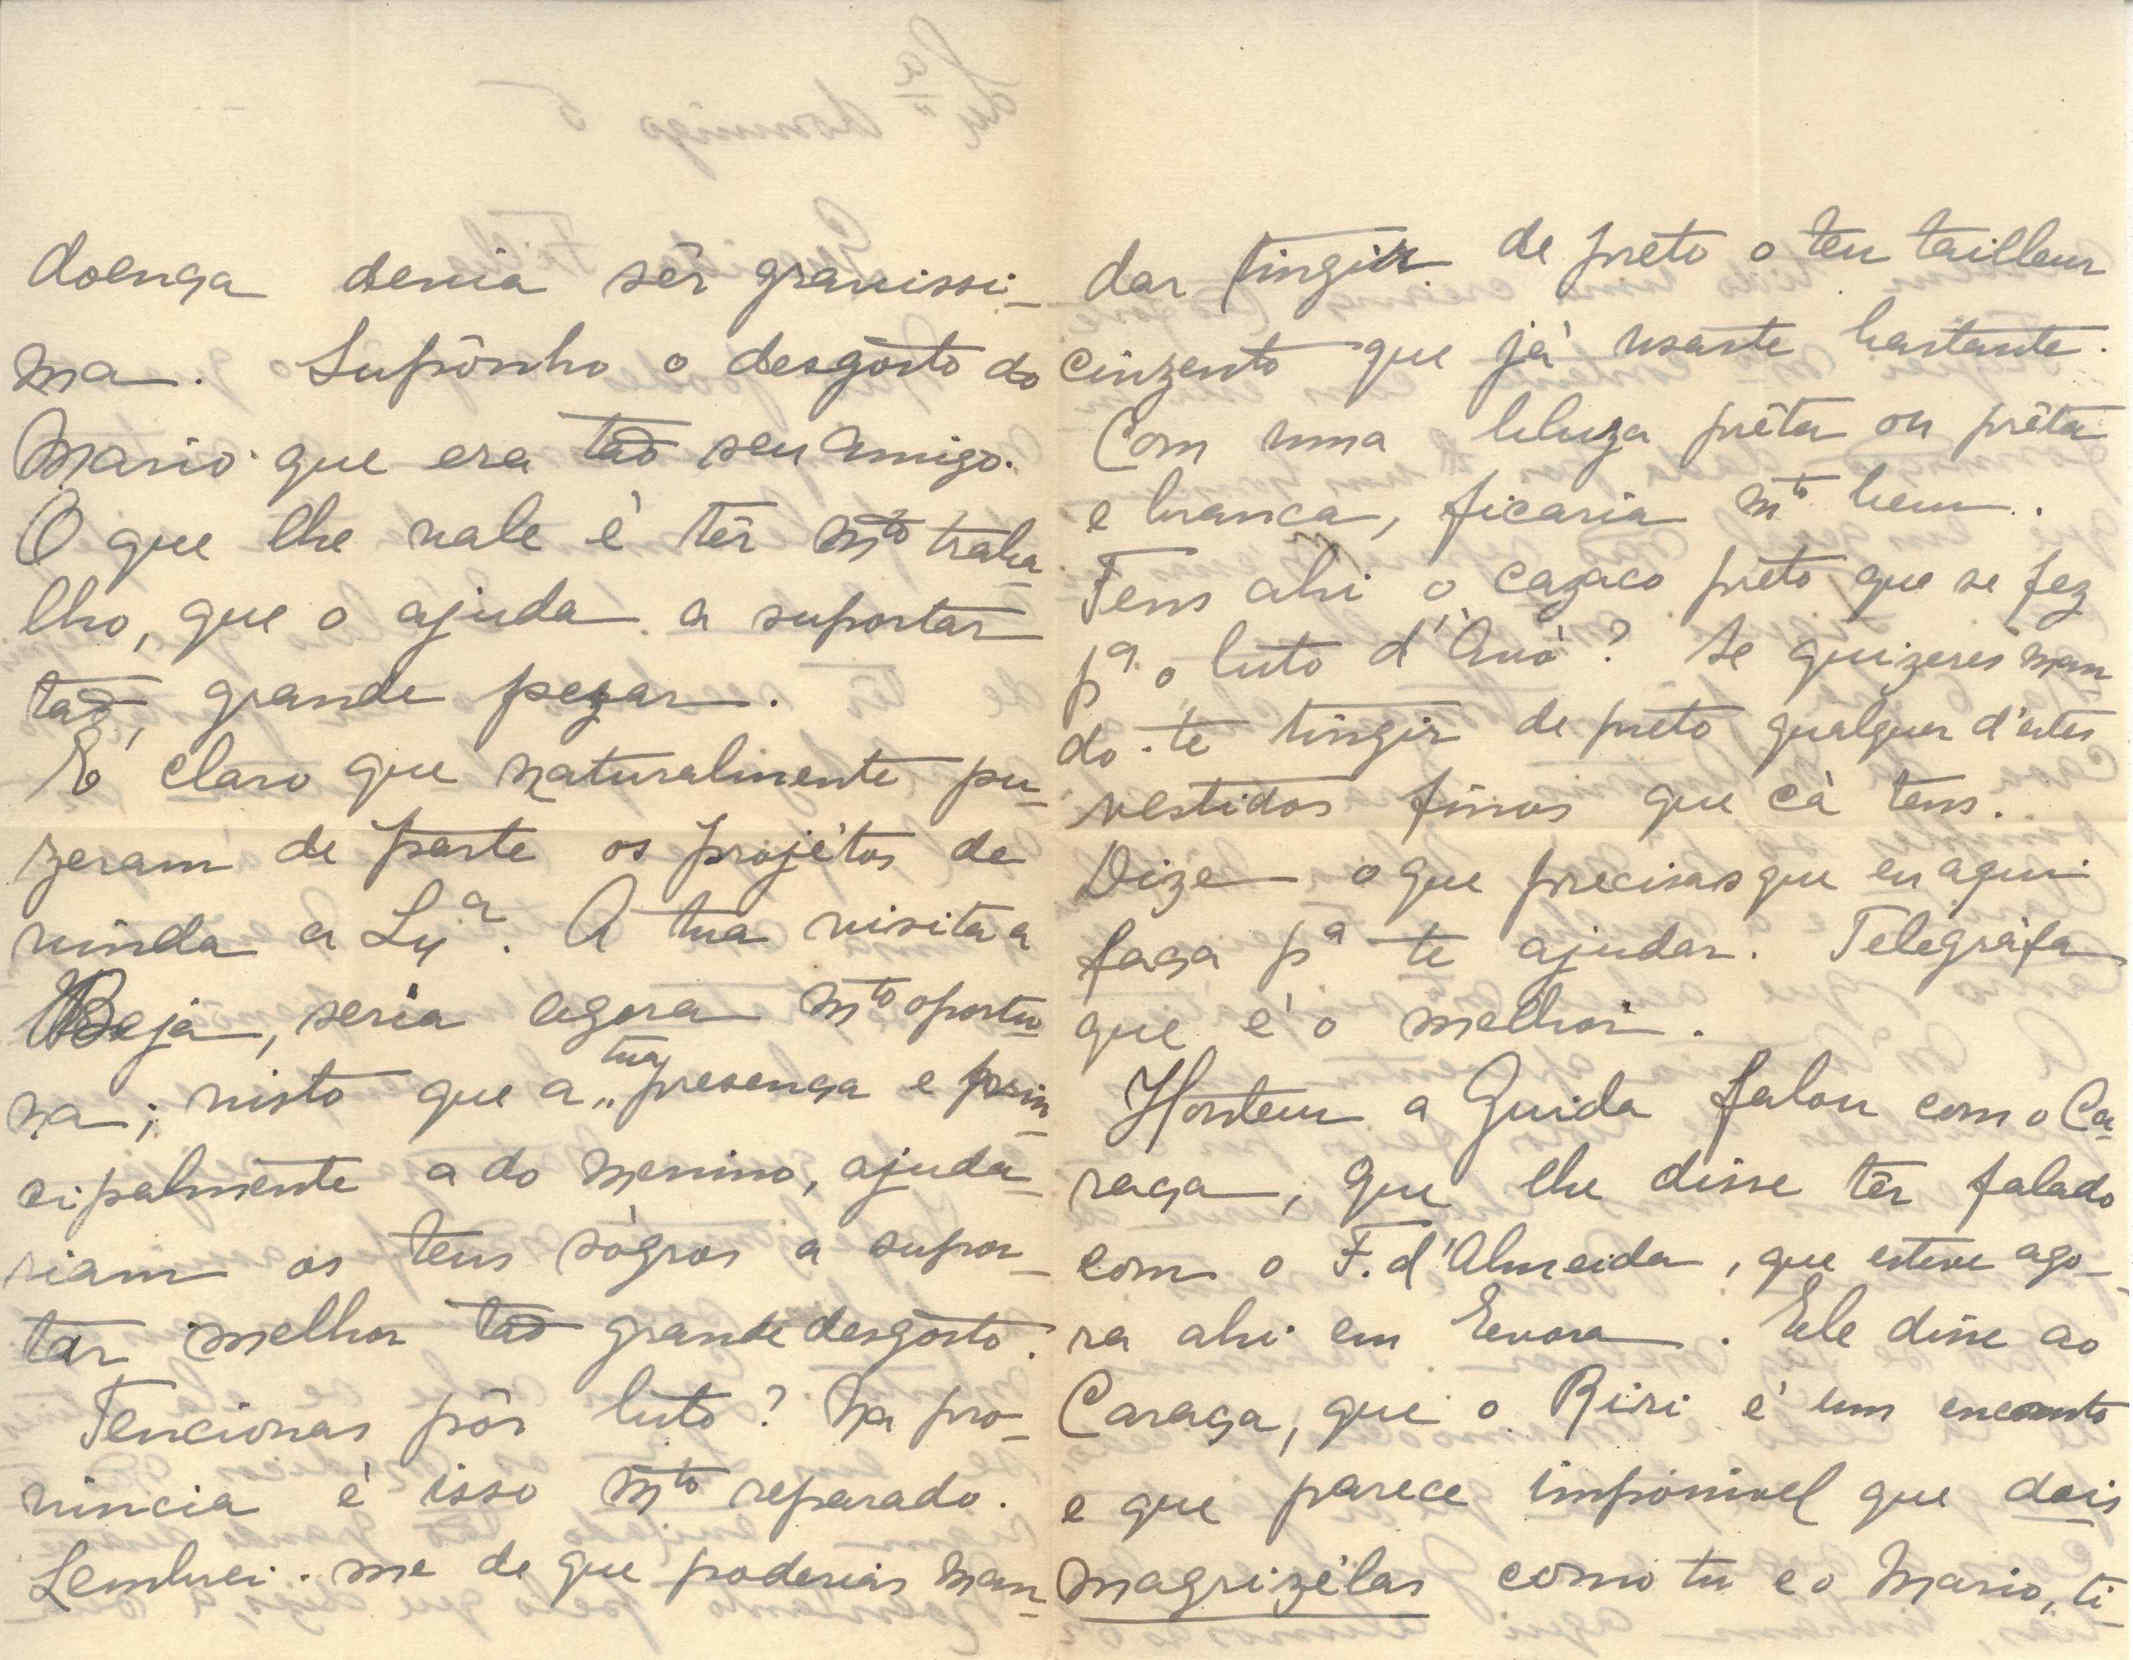 doença devia sêr gravissi-
ma. Supônho o desgôsto do
Mario que era tão seu amigo.
O que lhe vale é têr mto traba-
lho, que o ajuda a suportar
tão grande pezar.
É claro que naturalmente pu-
zeram de parte os projétos de
vinda a Lxa. A tua visita a
Beja, seria agora mto oportu-
na; visto que a tua presença e prin-
cipalmente a do menino, ajuda-
riam os teus sógros a supor-
tar melhor tão grande desgôsto.
Tencionas pôr luto? Na pro-
vincia é isso mto reparado.
Lembrei-me de que poderias man-
dar tingir de preto o teu tailleur
cinzento que já usaste bastante.
Com uma bluza prêta ou prêta
e branca, ficaria mto bem.
Tens ahi o cazaco preto que se fez
pa o luto d'Avó? Se quizeres man-
do-te tingir de preto qualquer d'estes
vestidos finos que cá tens.
Dize o que precisas que eu aqui
faça pa te ajudar. Telegráfa
que é o melhor.
Hontem a Guida falou com o Ca-
raça, que lhe disse têr falado
com o F. d'Almeida, que esteve ago-
ra ahi em Evora. Ele disse ao
Caraça, que o Riri é um encanto
e que parece impossivel que dois
magrizélas como tu e o Mario, ti-